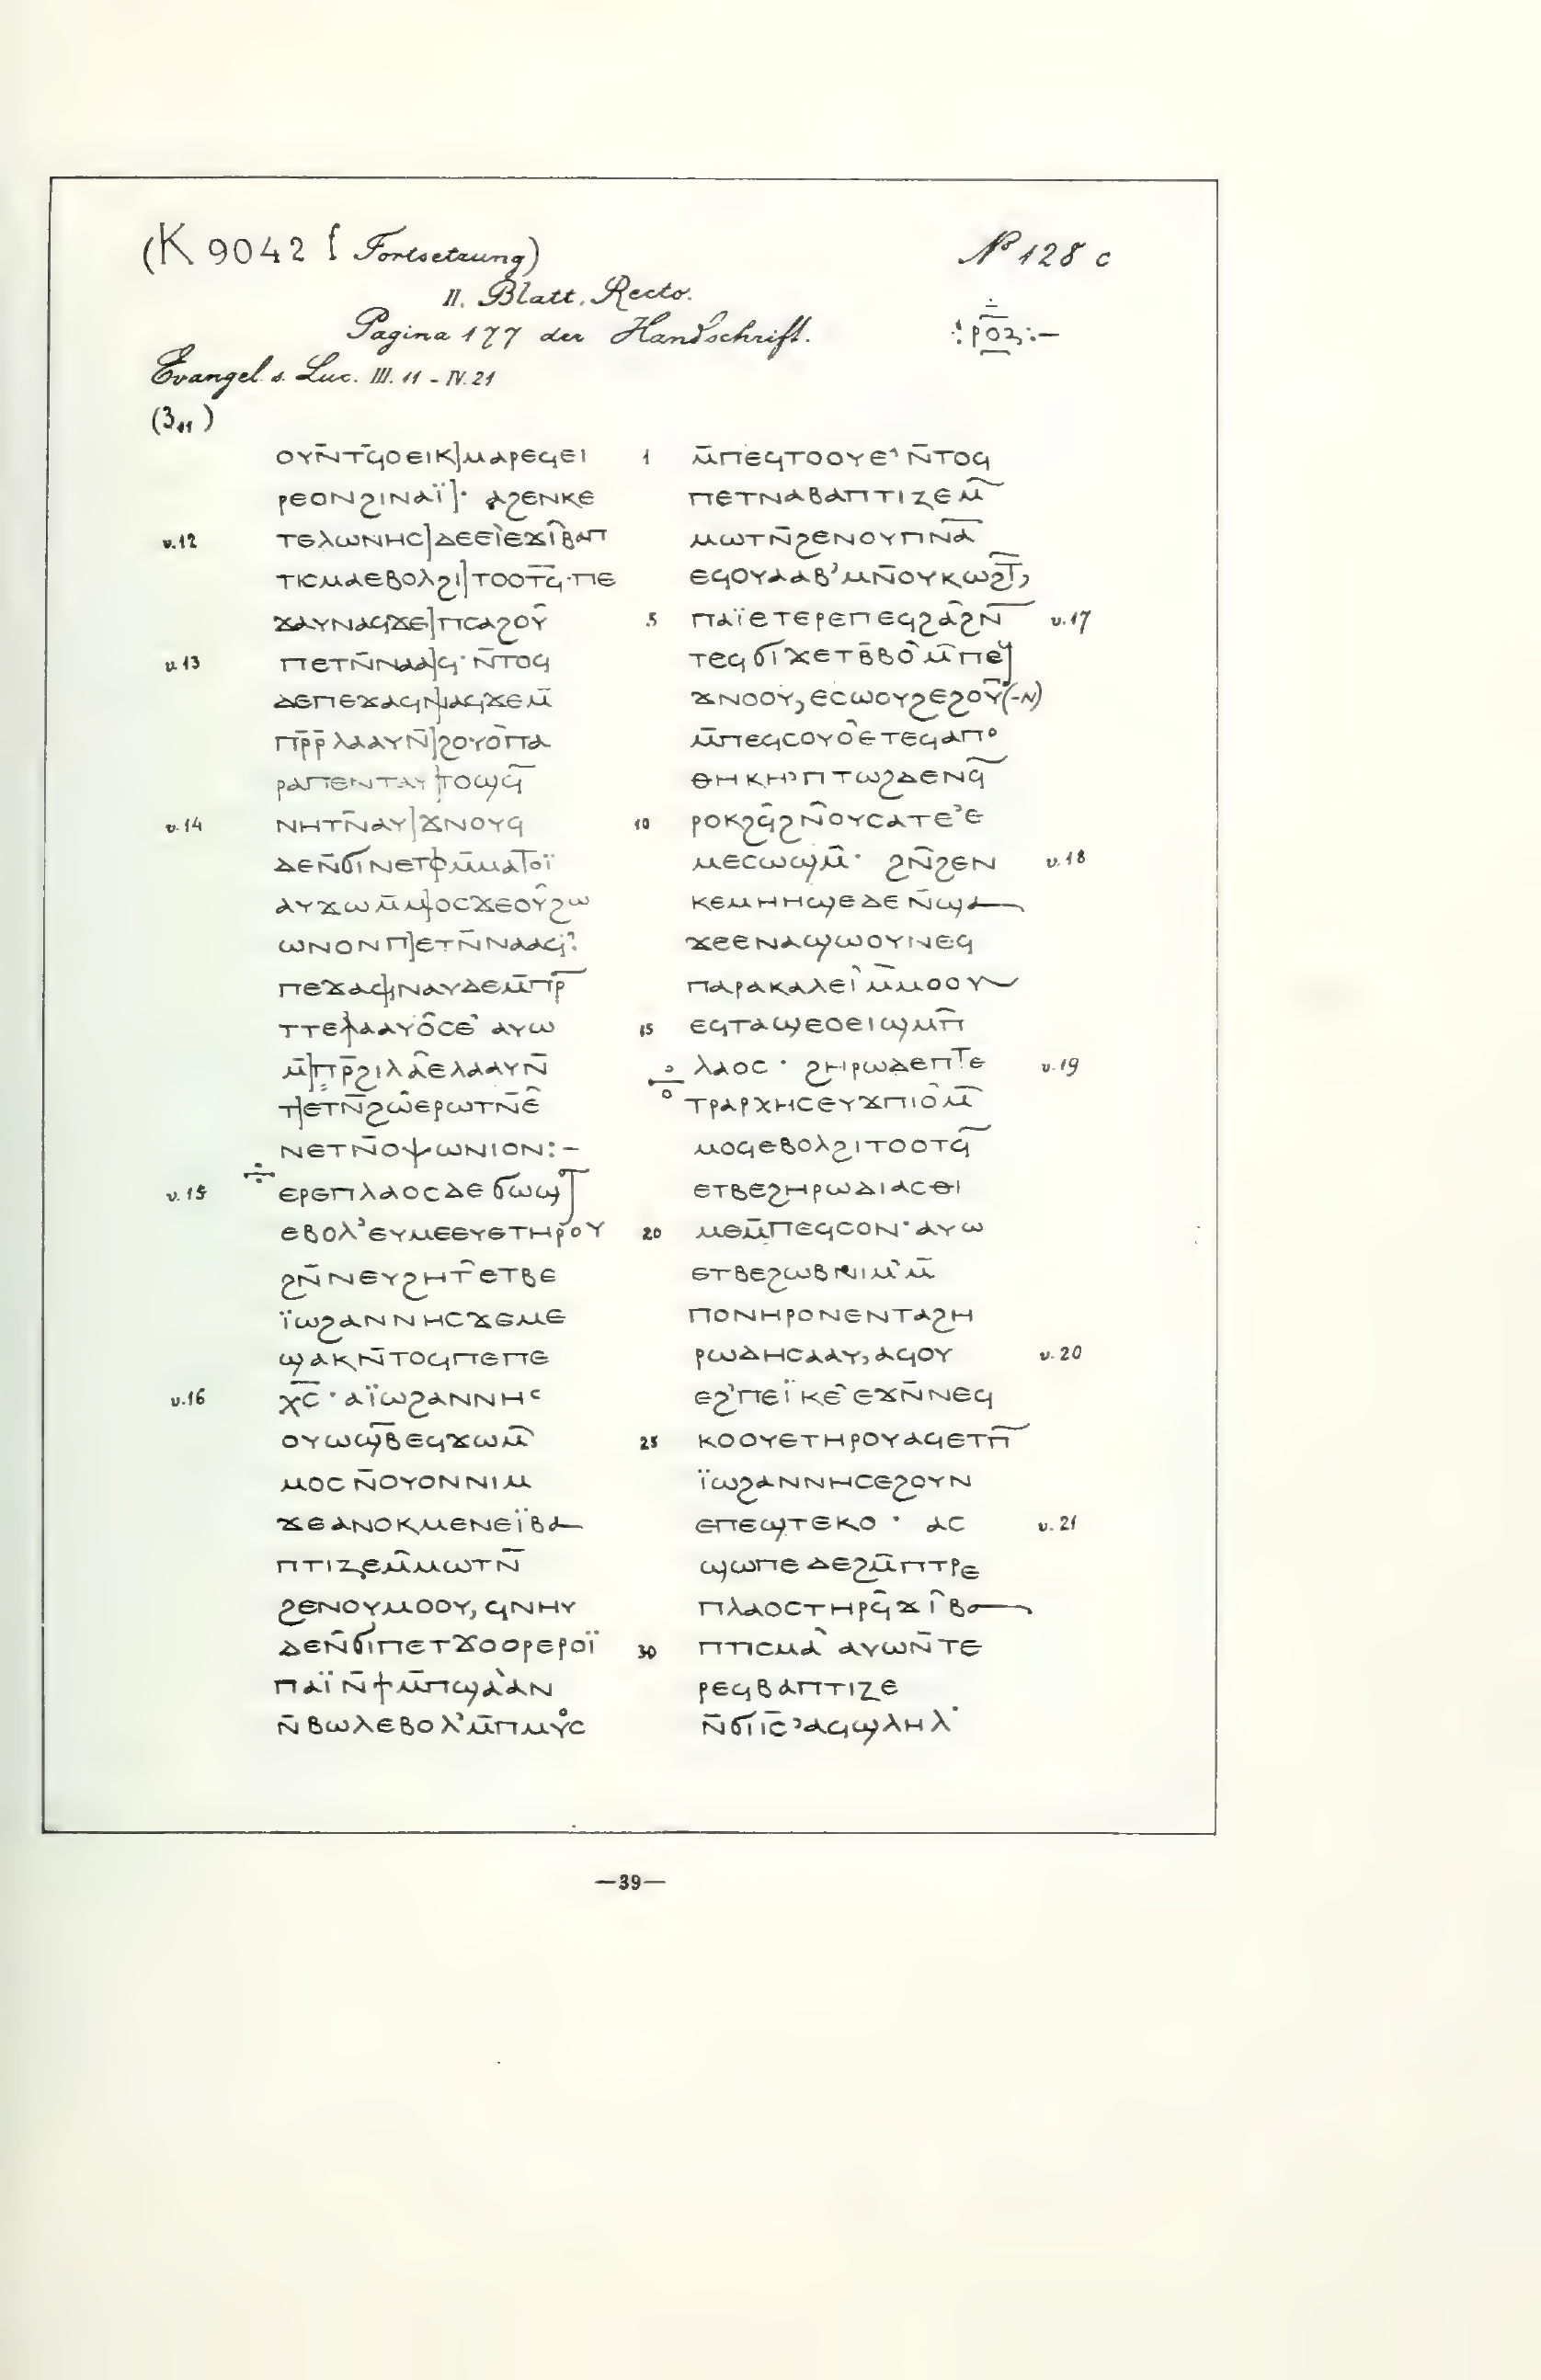 (K 9042 f Fortsetzung)
N° 128 c
II. Blatt. Recto.
Pagina 177 der Handschrift.
:ⲣⲟⲍ:–
Evangel. s. Luc. III. 11 - IV. 21
(3₁₁)
ⲟⲩⲛ̄ⲧϥ̄ⲟⲉⲓⲕ]ⲙⲁⲣⲉϥⲉⲓ
ⲣⲉⲟⲛϩⲓⲛⲁⲓ̈]· ⲁϩⲉⲛⲕⲉ
v.12 ⲧⲉⲗⲱⲛⲏⲥ]ⲇⲉⲉⲓ̀ⲉϫⲓ̂ⲃⲁⲡ
ⲧⲓⲥⲙⲁⲉⲃⲟⲗϩⲓ]ⲧⲟⲟⲧϥ̄·ⲡⲉ
ϫⲁⲩⲛⲁϥϫⲉ]ⲡⲥⲁϩⲟⲩ̂
v.13 ⲡⲉⲧⲛ̄ⲛⲁⲁ]ϥ·ⲛ̄ⲧⲟϥ
ⲇⲉⲡⲉϫⲁϥⲛ]ⲁϥϫⲉⲙ̄
ⲡⲣ̄ⲣ̄ⲗⲁⲁⲩⲛ̄]ϩⲟⲩⲟ̀ⲡⲁ
ⲣⲁⲡⲉⲛⲧⲁⲩ]ⲧⲟϣϥ̄
v.14 ⲛⲏⲧⲛ̄ⲁⲩ]ϫⲛⲟⲩϥ
ⲇⲉⲛ̄ϭⲓⲛⲉⲧⲟ]ⲙ̄ⲙⲁⲧⲟⲓ̈
ⲁⲩϫⲱⲙ̄ⲙ]ⲟⲥϫⲉⲟⲩ̂ϩⲱ
ⲱⲛⲟⲛⲡ]ⲉⲧⲛ̄ⲛⲁⲁϥ:
ⲡⲉϫⲁϥ]ⲛⲁⲩⲇⲉⲙ̄ⲡⲣ̄
ⲧⲧⲉⲗ]ⲁⲁⲩⲟ̂ⲥⲉ̀ ⲁⲩⲱ
ⲙ̄]ⲡⲣ̄ϩⲓⲗⲁ̂ⲉⲗⲁⲁⲩⲛ̄
ⲧ]ⲉⲧⲛ̄ϩⲱ̂ⲉⲣⲱⲧⲛ̄ⲉ̂
ⲛⲉⲧⲛ̄ⲟⲯⲱⲛⲓⲟⲛ:–
v.15 ⲉⲣⲉⲡⲗⲁⲟⲥⲇⲉϭⲱϣⲧ
ⲉⲃⲟⲗ̓ⲉⲩⲙⲉⲉⲩⲉⲧⲏⲣⲟⲩ
ϩⲛ̄ⲛⲉⲩϩⲏⲧ̂ⲉⲧⲃⲉ
ⲓ̈ⲱϩⲁⲛⲛⲏⲥϫⲉⲙⲉ
ϣⲁⲕⲛ̄ⲧⲟϥⲡⲉⲡⲉ
v.16 ⲭ̄ⲥ̄·ⲁⲓ̈ⲱϩⲁⲛⲛⲏⲥ
ⲟⲩⲱϣ̄ⲃⲉϥϫⲱⲙ̄
ⲙⲟⲥⲛ̄ⲟⲩⲟⲛⲛⲓⲙ
ϫⲉⲁⲛⲟⲕⲙⲉⲛⲉⲓ̈ⲃⲁ
ⲡⲧⲓⲍⲉⲙ̄ⲙⲱⲧⲛ̄
ϩⲉⲛⲟⲩⲙⲟⲟⲩ, ϥⲛⲏⲩ
ⲇⲉⲛ̄ϭⲓⲡⲉⲧϫⲟⲟⲣⲉⲣⲟⲓ̈
ⲡⲁⲓ̈ⲛ̄ϯⲙ̄ⲡϣⲁ̀ⲁⲛ
ⲛ̄ⲃⲱⲗⲉⲃⲟⲗ̓ⲙ̄ⲡⲙⲩⲟⲥ
1 ⲙ̄ⲡⲉϥⲧⲟⲟⲩⲉ̓ ⲛ̄ⲧⲟϥ
ⲡⲉⲧⲛⲁⲃⲁⲡⲧⲓⲍⲉⲙ̄
ⲙⲱⲧⲛ̄ϩⲉⲛⲟⲩⲡ̄ⲛ̄ⲁ̄
ⲉϥⲟⲩⲁⲁⲃ̓ⲙⲛ̄ⲟⲩⲕⲱϩⲧ̄,
5 ⲡⲁⲓ̈ⲉⲧⲉⲣⲉⲡⲉϥϩⲁ̂ϩⲛ̄ v.17
ⲧⲉϥϭⲓϫⲉⲧⲃ̄ⲃⲟ̀ⲙ̄ⲡⲉϥ
ϫⲛⲟⲟⲩ, ⲉⲥⲱⲟⲩϩⲉϩⲟⲩ̄(-ⲛ)
ⲙ̄ⲡⲉϥⲥⲟⲩⲟ̂ⲉⲧⲉϥⲁⲡⲟ
ⲑⲏⲕⲏ̓ⲡⲧⲱϩⲇⲉⲛϥ̄
10 ⲣⲟⲕϩϥ̄ϩⲛ̄ⲟⲩⲥⲁⲧⲉ̓ⲉ
ⲙⲉⲥⲱϣⲙ̄· ϩⲛ̄ϩⲉⲛ v.18
ⲕⲉⲙⲏⲏϣⲉⲇⲉⲛ̄ϣⲁ
ϫⲉⲉⲛⲁϣⲱⲟⲩⲛⲉϥ
ⲡⲁⲣⲁⲕⲁⲗⲉⲓ̂ⲙ̄ⲙⲟⲟⲩ
15 ⲉϥⲧⲁϣⲉⲟⲉⲓϣⲙⲡ̄
ⲗⲁⲟⲥ· ϩⲏⲣⲱⲇⲉⲡⲧⲉ v.19
ⲧⲣⲁⲣⲭⲏⲥⲉⲩϫⲡⲓⲟ̂ⲙ̄
ⲙⲟϥⲉⲃⲟⲗϩⲓⲧⲟⲟⲧϥ̄
ⲉⲧⲃⲉϩⲏⲣⲱⲇⲓⲁⲥⲑⲓ
20 ⲙⲉⲙ̄ⲡⲉϥⲥⲟⲛ·ⲁⲩⲱ
ⲉⲧⲃⲉϩⲱⲃⲛⲓⲙ̓ⲙ̄
ⲡⲟⲛⲏⲣⲟⲛⲉⲛⲧⲁϩⲏ
ⲣⲱⲇⲏⲥⲁⲁⲩ, ⲁϥⲟⲩ v.20
ⲉϩ̓ⲡⲉⲓ̈ⲕⲉ̂ⲉϫⲛ̄ⲛⲉϥ
25 ⲕⲟⲟⲩⲉⲧⲏⲣⲟⲩⲁϥⲉⲧⲡ̄
ⲓ̈ⲱϩⲁⲛⲛⲏⲥⲉϩⲟⲩⲛ
ⲉⲡⲉϣⲧⲉⲕⲟ · ⲁⲥ v.21
ϣⲱⲡⲉⲇⲉϩⲙ̄ⲡⲧⲣⲉ
ⲡⲗⲁⲟⲥⲧⲏⲣϥ̄ϫⲓ̂ⲃⲁ
30 ⲡⲧⲓⲥⲙⲁ̂ ⲁⲩⲱⲛ̄ⲧⲉ
ⲣⲉϥⲃⲁⲡⲧⲓⲍⲉ
ⲛ̄ϭⲓⲓ̄ⲥ̄̓ⲁϥϣⲗⲏⲗ·
—39—